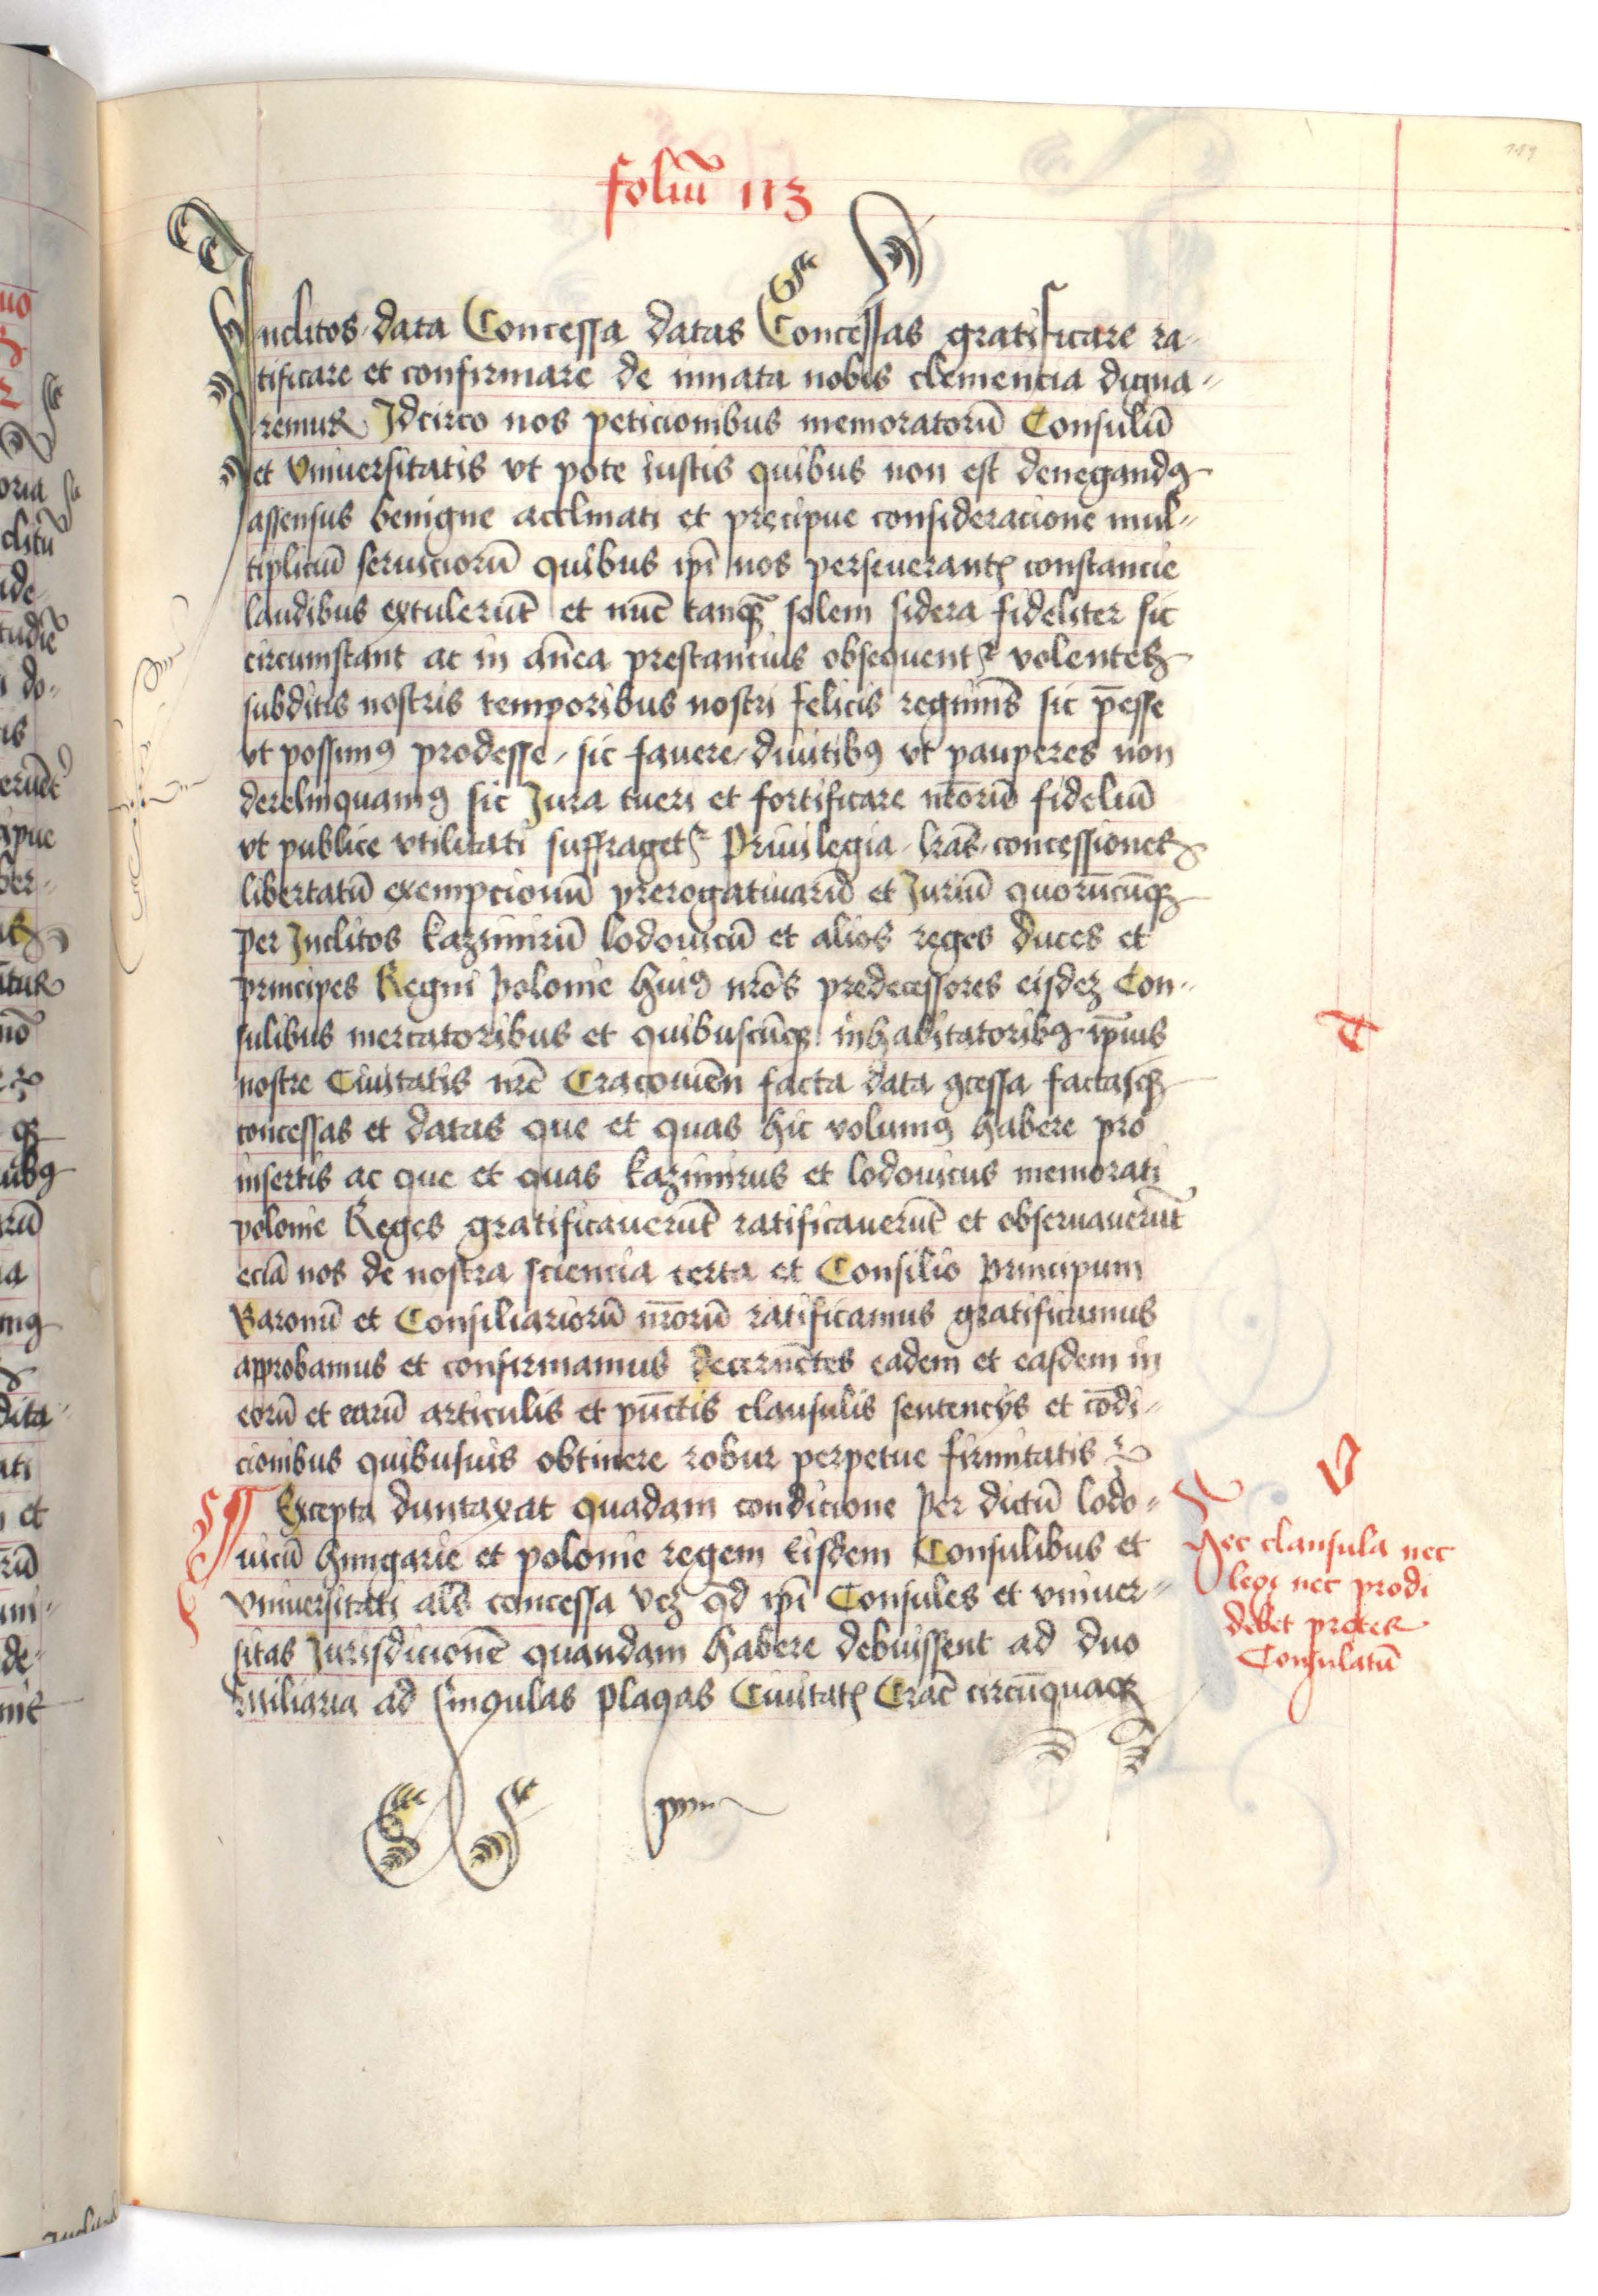 foliū 113
Inclitos data Concessa datas Concessas gratificare ra-
tificare et confirmare de innata nobis clemencia digna-
remur Idcirco nos peticionibus memoratorū Consulū
et Vniuersitatis vt pote iustis quibus non est denegandꝰ
assensus benigne acclinati et precipue consideracione mul-
tiplicū seruiciorū quibus ip̄i nos perseuerantꝭ constancie
laudibus extulerūt et nūc tanqꝫ solem sidera fideliter sic
circumstant ac in an̄ea prestancius obsequentr̄ volentes
subditis nostris temporibus nostri felicis regimīs sic p̄esse
vt possimꝰ prodesse, sic fauere, diuitibꝰ vt pauperes non
derelinquamꝰ sic Jura tueri et fortificare nr̄orū fideliū
vt publice vtilitati suffragetr̄ Priuilegia lr̄as concessiones
libertatū exempcionū prerogatiuarū et Juriū quorūcūqꝫ
per Inclitos kazimirū lodouicū et alios reges duces et
principes Regni Polonie huiꝰ nr̄os predecessores eisdeꝫ Con-
sulibus mercatoribus et quibuscūqꝫ inhabitatoribꝰ ip̄ius
nostre Ciuitatis nr̄e Cracouien̄ facta data ꝯcessa factasqꝫ
concessas et datas que et quas hic volumꝰ habere pro
insertis ac que et quas kazimirus et lodouicus memorati
polonie Reges gratificauerūt ratificauerūt et obseruauerūt
eciā nos de nostra sciencia certa et Consilio Principum
Baronū et Consiliariorū nr̄orū ratificamus gratificamus
approbamus et confirmamus decernētes eadem et easdem in
eorū et earū articulis et pūctis clausulis sentencijs et cōdi-
cionibus quibusuis obtinere robur perpetue firmitatis
¶ Excepta duntaxat quadam condicione Per dictū lodo-
uicū hungarie et polonie regem Eisdem Consulibus et
Vniuersitati al̄s concessa vꝫ qd̄ ip̄i Consules et vniuer-
sitas Jurisdicionē quandam habere debuissent ad duo
Miliaria ad singulas plagas Ciuitatꝭ Crac̄ circūquaqꝫ
V
Hec clausula nec
legi nec prodi
debet preter
Consulatū